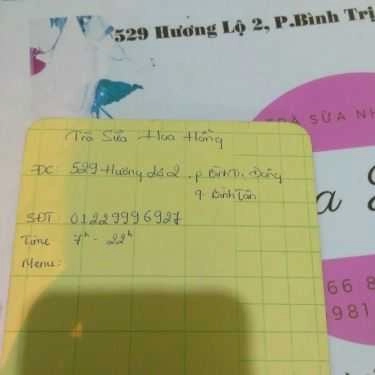 529 Hương Lộ 2, P.Bình Trị
TRÀ SỮA NH
a
66 8
981
Trà Sữa Hoa Hồng
ĐC: 529 Hương Lộ 2, p. Bình Trị Đông
q. Bình Tân
SĐT: 01229996927
Time 7h - 22h
Menu: